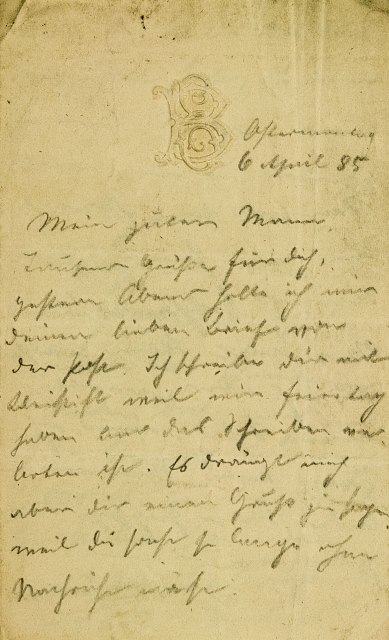 Ostermontag
6 April 85
Mein guter Mann,
tausend Grüße für dich,
gestern Abend holte ich mir
deinen lieben Brief von
der Post. Ich schreibe dir mit
Bleistift weil wir Feiertag
haben und das Schreiben ver
boten ist. Es drängt mich
aber dir einen Gruß zu sagen
weil du sonst so lange ohne
Nachricht wärst.